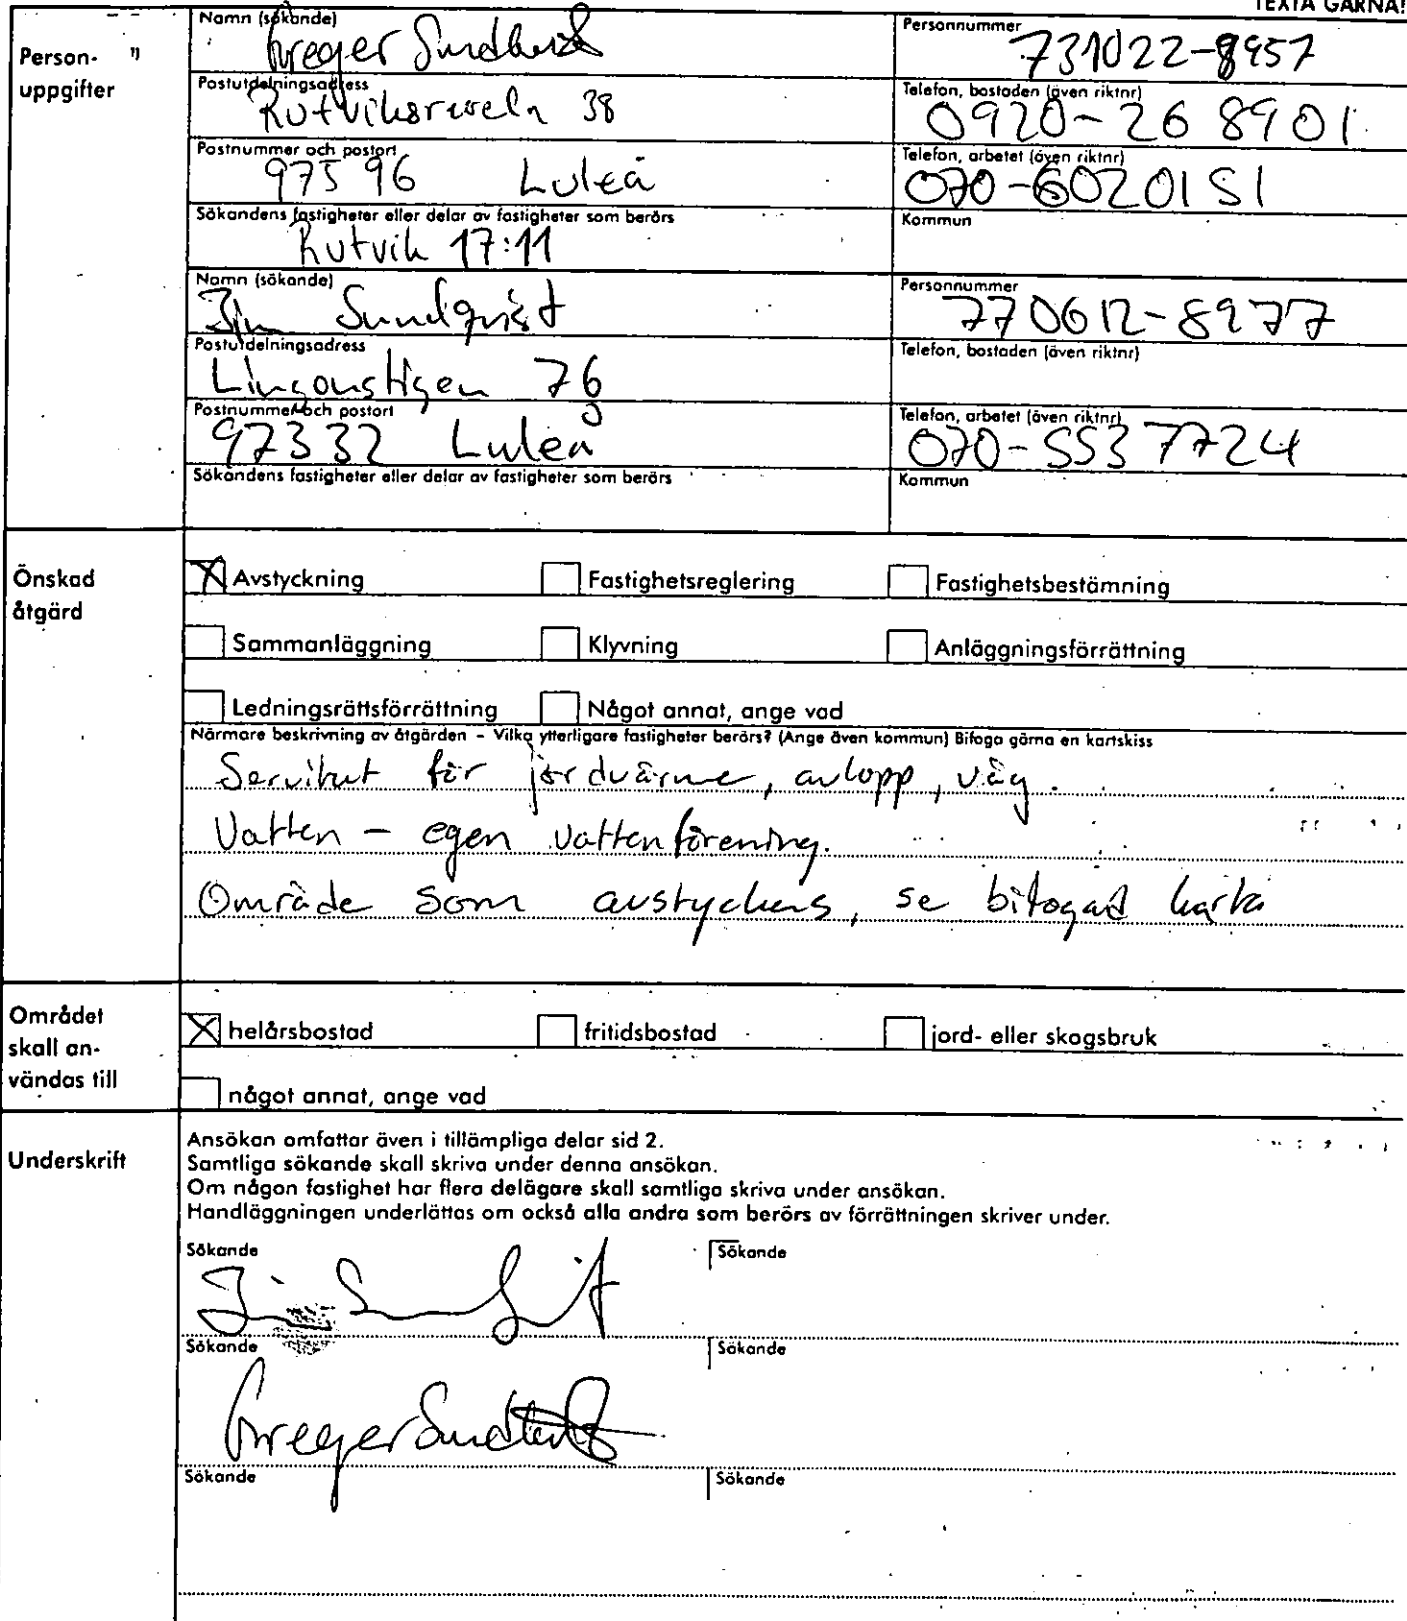 TEXTA GÄRNA!
Person-
uppgifter
1)
Namn (sökande)
Greger
Personnummer
731022-8957
Postutdelningsadress
38
Telefon, bostaden (även riktnr)
0920-26 8901
Postnummer och postort
975 96 Luleå
Telefon, arbetet (även riktnr)
070-6020151
Sökandens fastigheter eller delar av fastigheter som berörs
Rutvik 17:11
Kommun
Namn (sökande)
Jim Sundqvist
Personnummer
770612-8977
Postutdelningsadress
Lingonstigen 76
Telefon, bostaden (även riktnr)
Postnummer och postort
97332 Luleå
Telefon, arbetet (även riktnr)
070-5537724
Sökandens fastigheter eller delar av fastigheter som berörs
Kommun
Önskad
åtgärd
X Avstyckning
Fastighetsreglering
Fastighetsbestämning
Sammanläggning
Klyvning
Anläggningsförrättning
Ledningsrättsförrättning
Något annat, ange vad
Närmare beskrivning av åtgärden – Vilka ytterligare fastigheter berörs? (Ange även kommun) Bifoga gärna en kartskiss
Servitut för jordvärme, avlopp, väg.
Vatten – egen vattenförening.
Område som avstyckas, se bifogad karta
Området
skall an-
vändas till
X helårsbostad
fritidsbostad
jord- eller skogsbruk
något annat, ange vad
Underskrift
Ansökan omfattar även i tillämpliga delar sid 2.
Samtliga sökande skall skriva under denna ansökan.
Om någon fastighet har flera delägare skall samtliga skriva under ansökan.
Handläggningen underlättas om också alla andra som berörs av förrättningen skriver under.
Sökande
Sökande
Jim Sundqvist
Sökande
Sökande
Greger
Sökande
Sökande